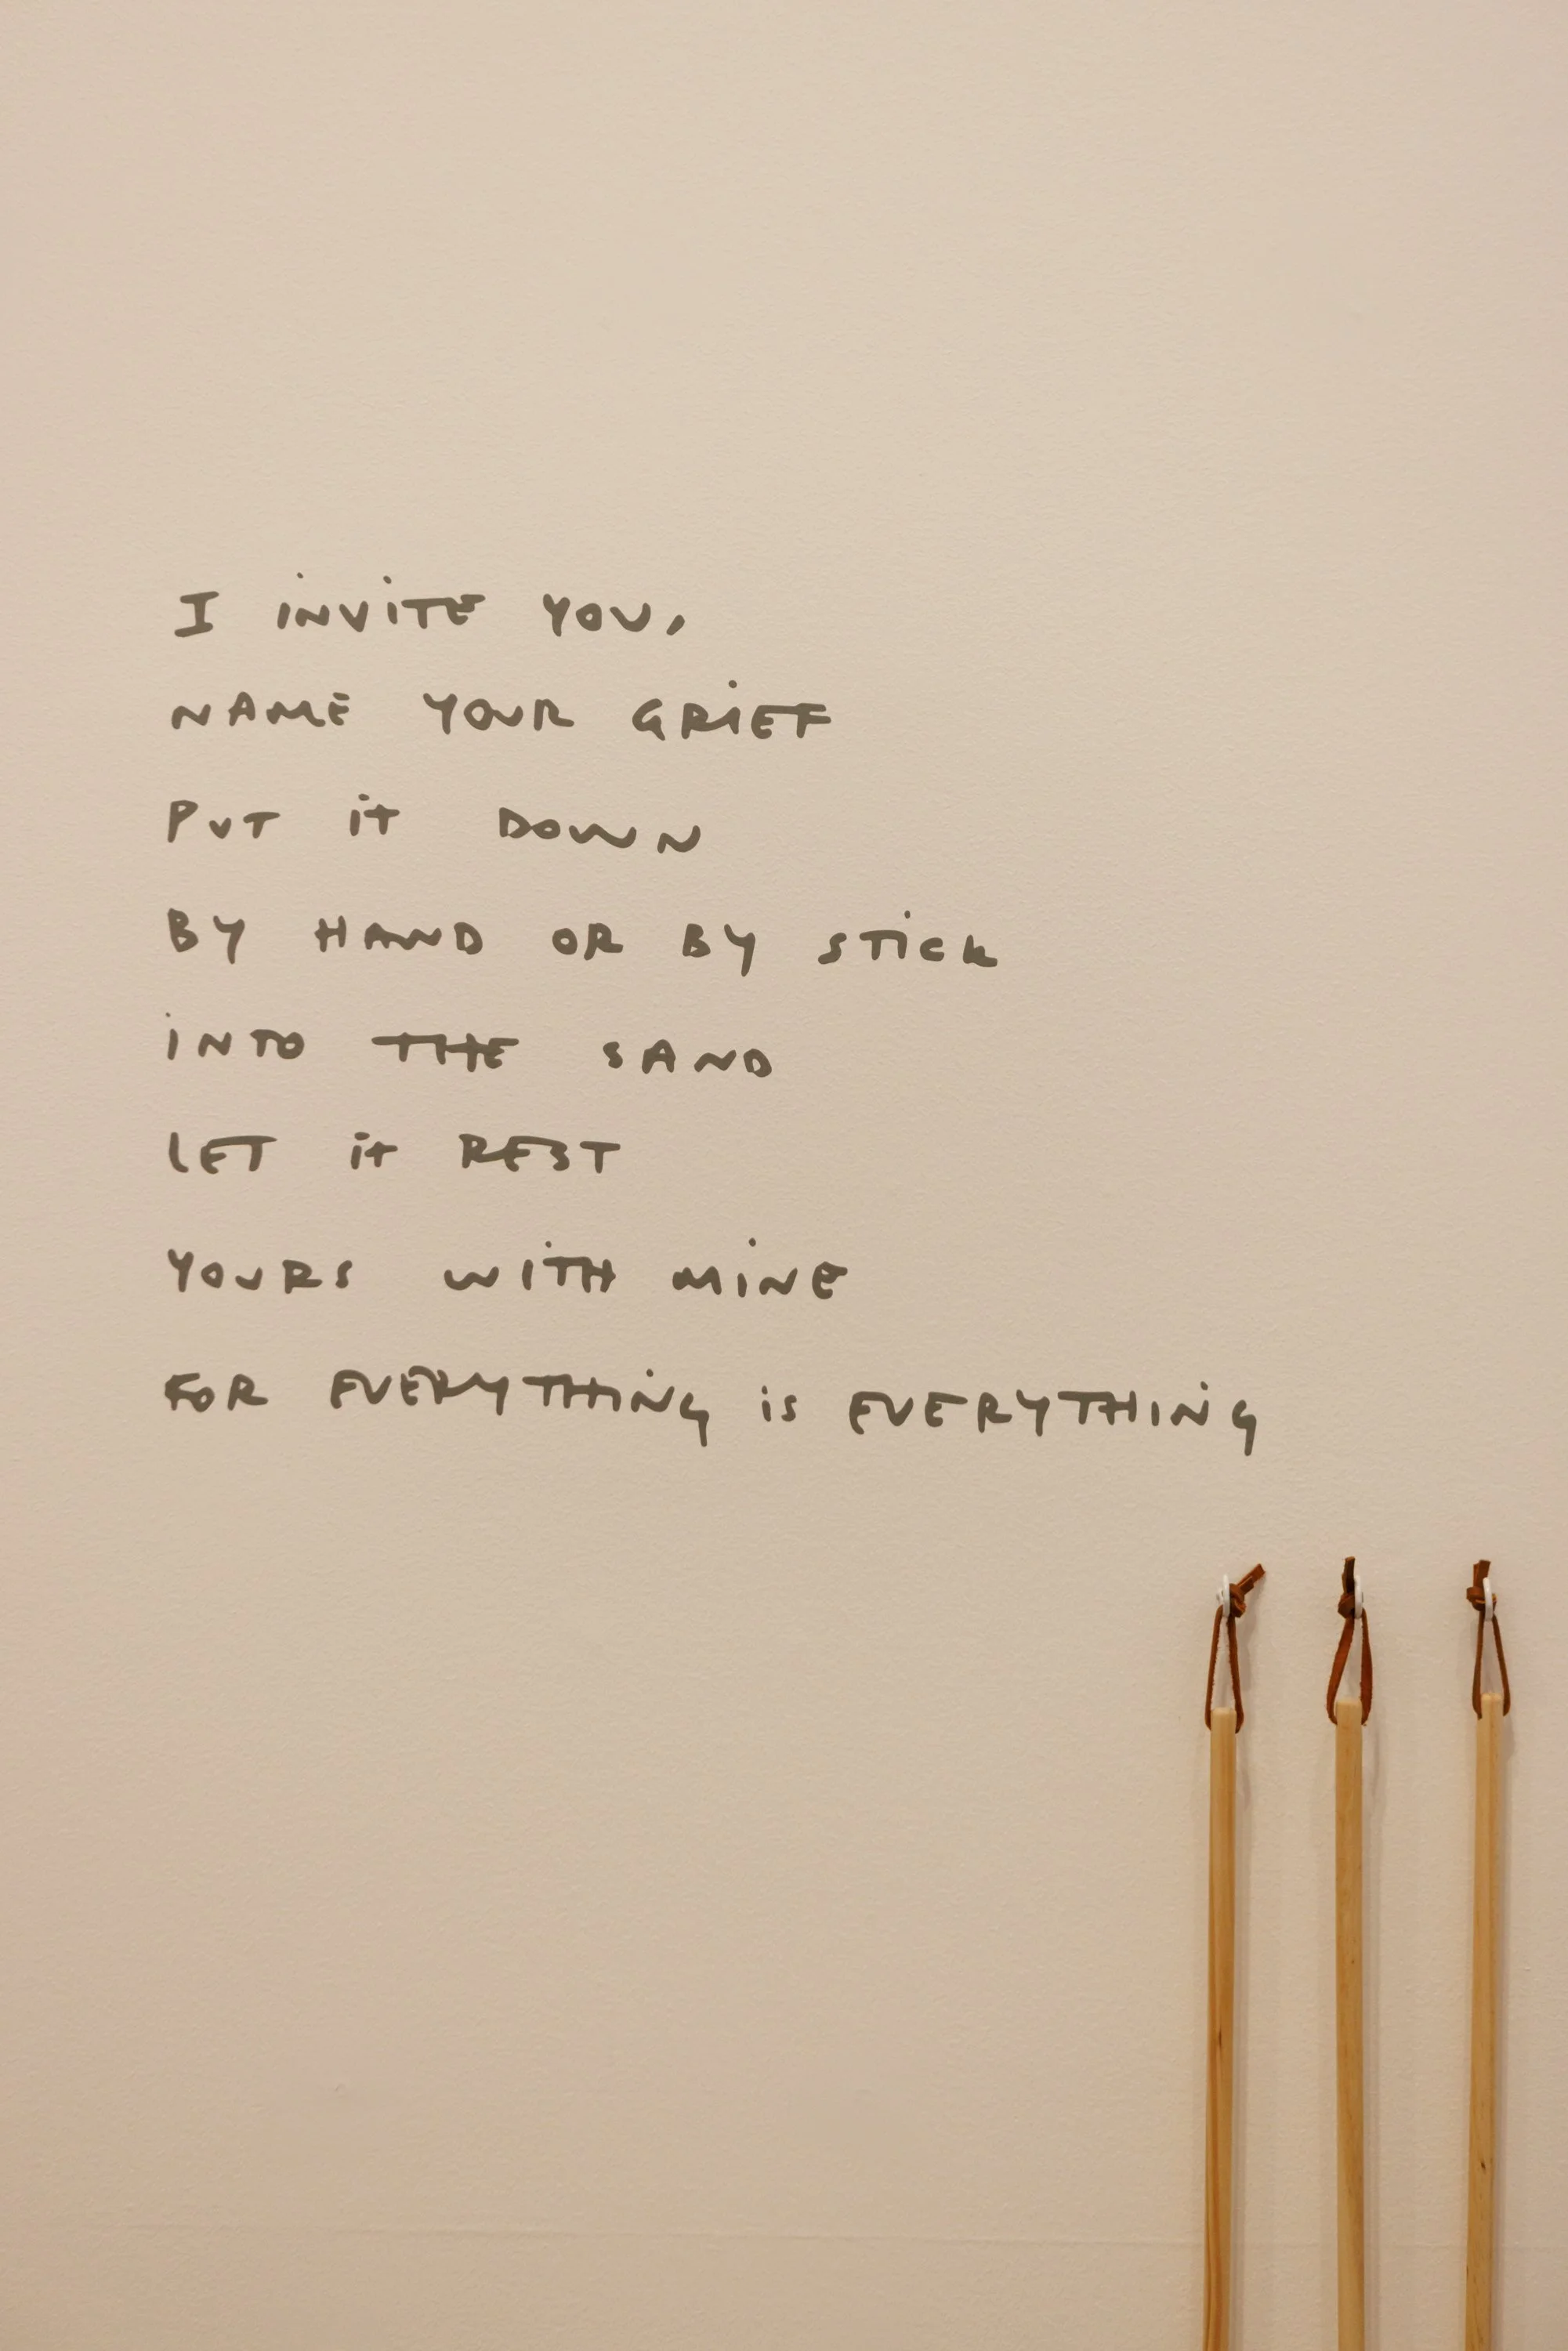 I INViTE YOU,
NAME YOUR GRiEF
PUT it DOWN
BY HAND OR BY STiCK
iNTO THE SAND
LET it REST
YOURS WiTH MiNE
FOR EVERYTHiNG is EVERYTHiNG